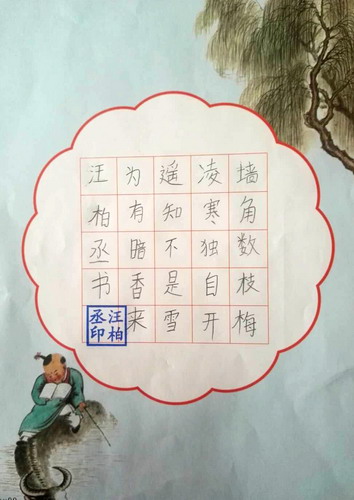 墙角数枝梅
凌寒独自开
遥知不是雪
为有暗香来
汪柏丞书
汪柏丞印